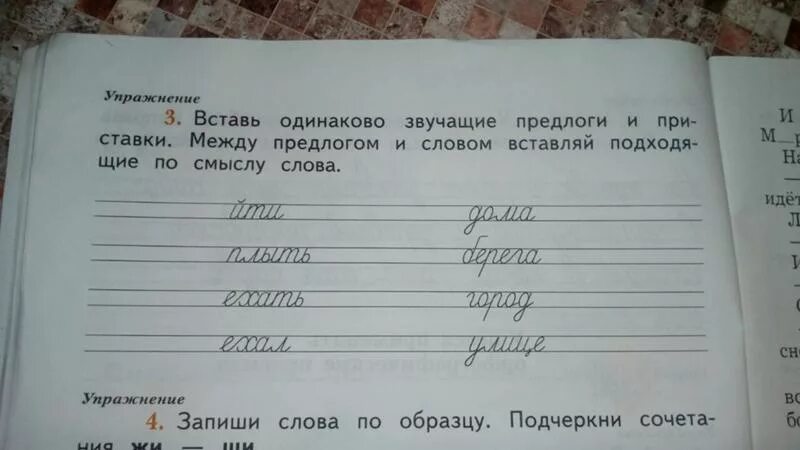 Упражнение
3. Вставь одинаково звучащие предлоги и при-
ставки. Между предлогом и словом вставляй подходя-
щие по смыслу слова.
йти дома
плыть берега
ехать город
ехал улице
Упражнение
4. Запиши слова по образцу. Подчеркни сочета-
ния жи — ши
И
М_р
На
идёт
Л
И
сно